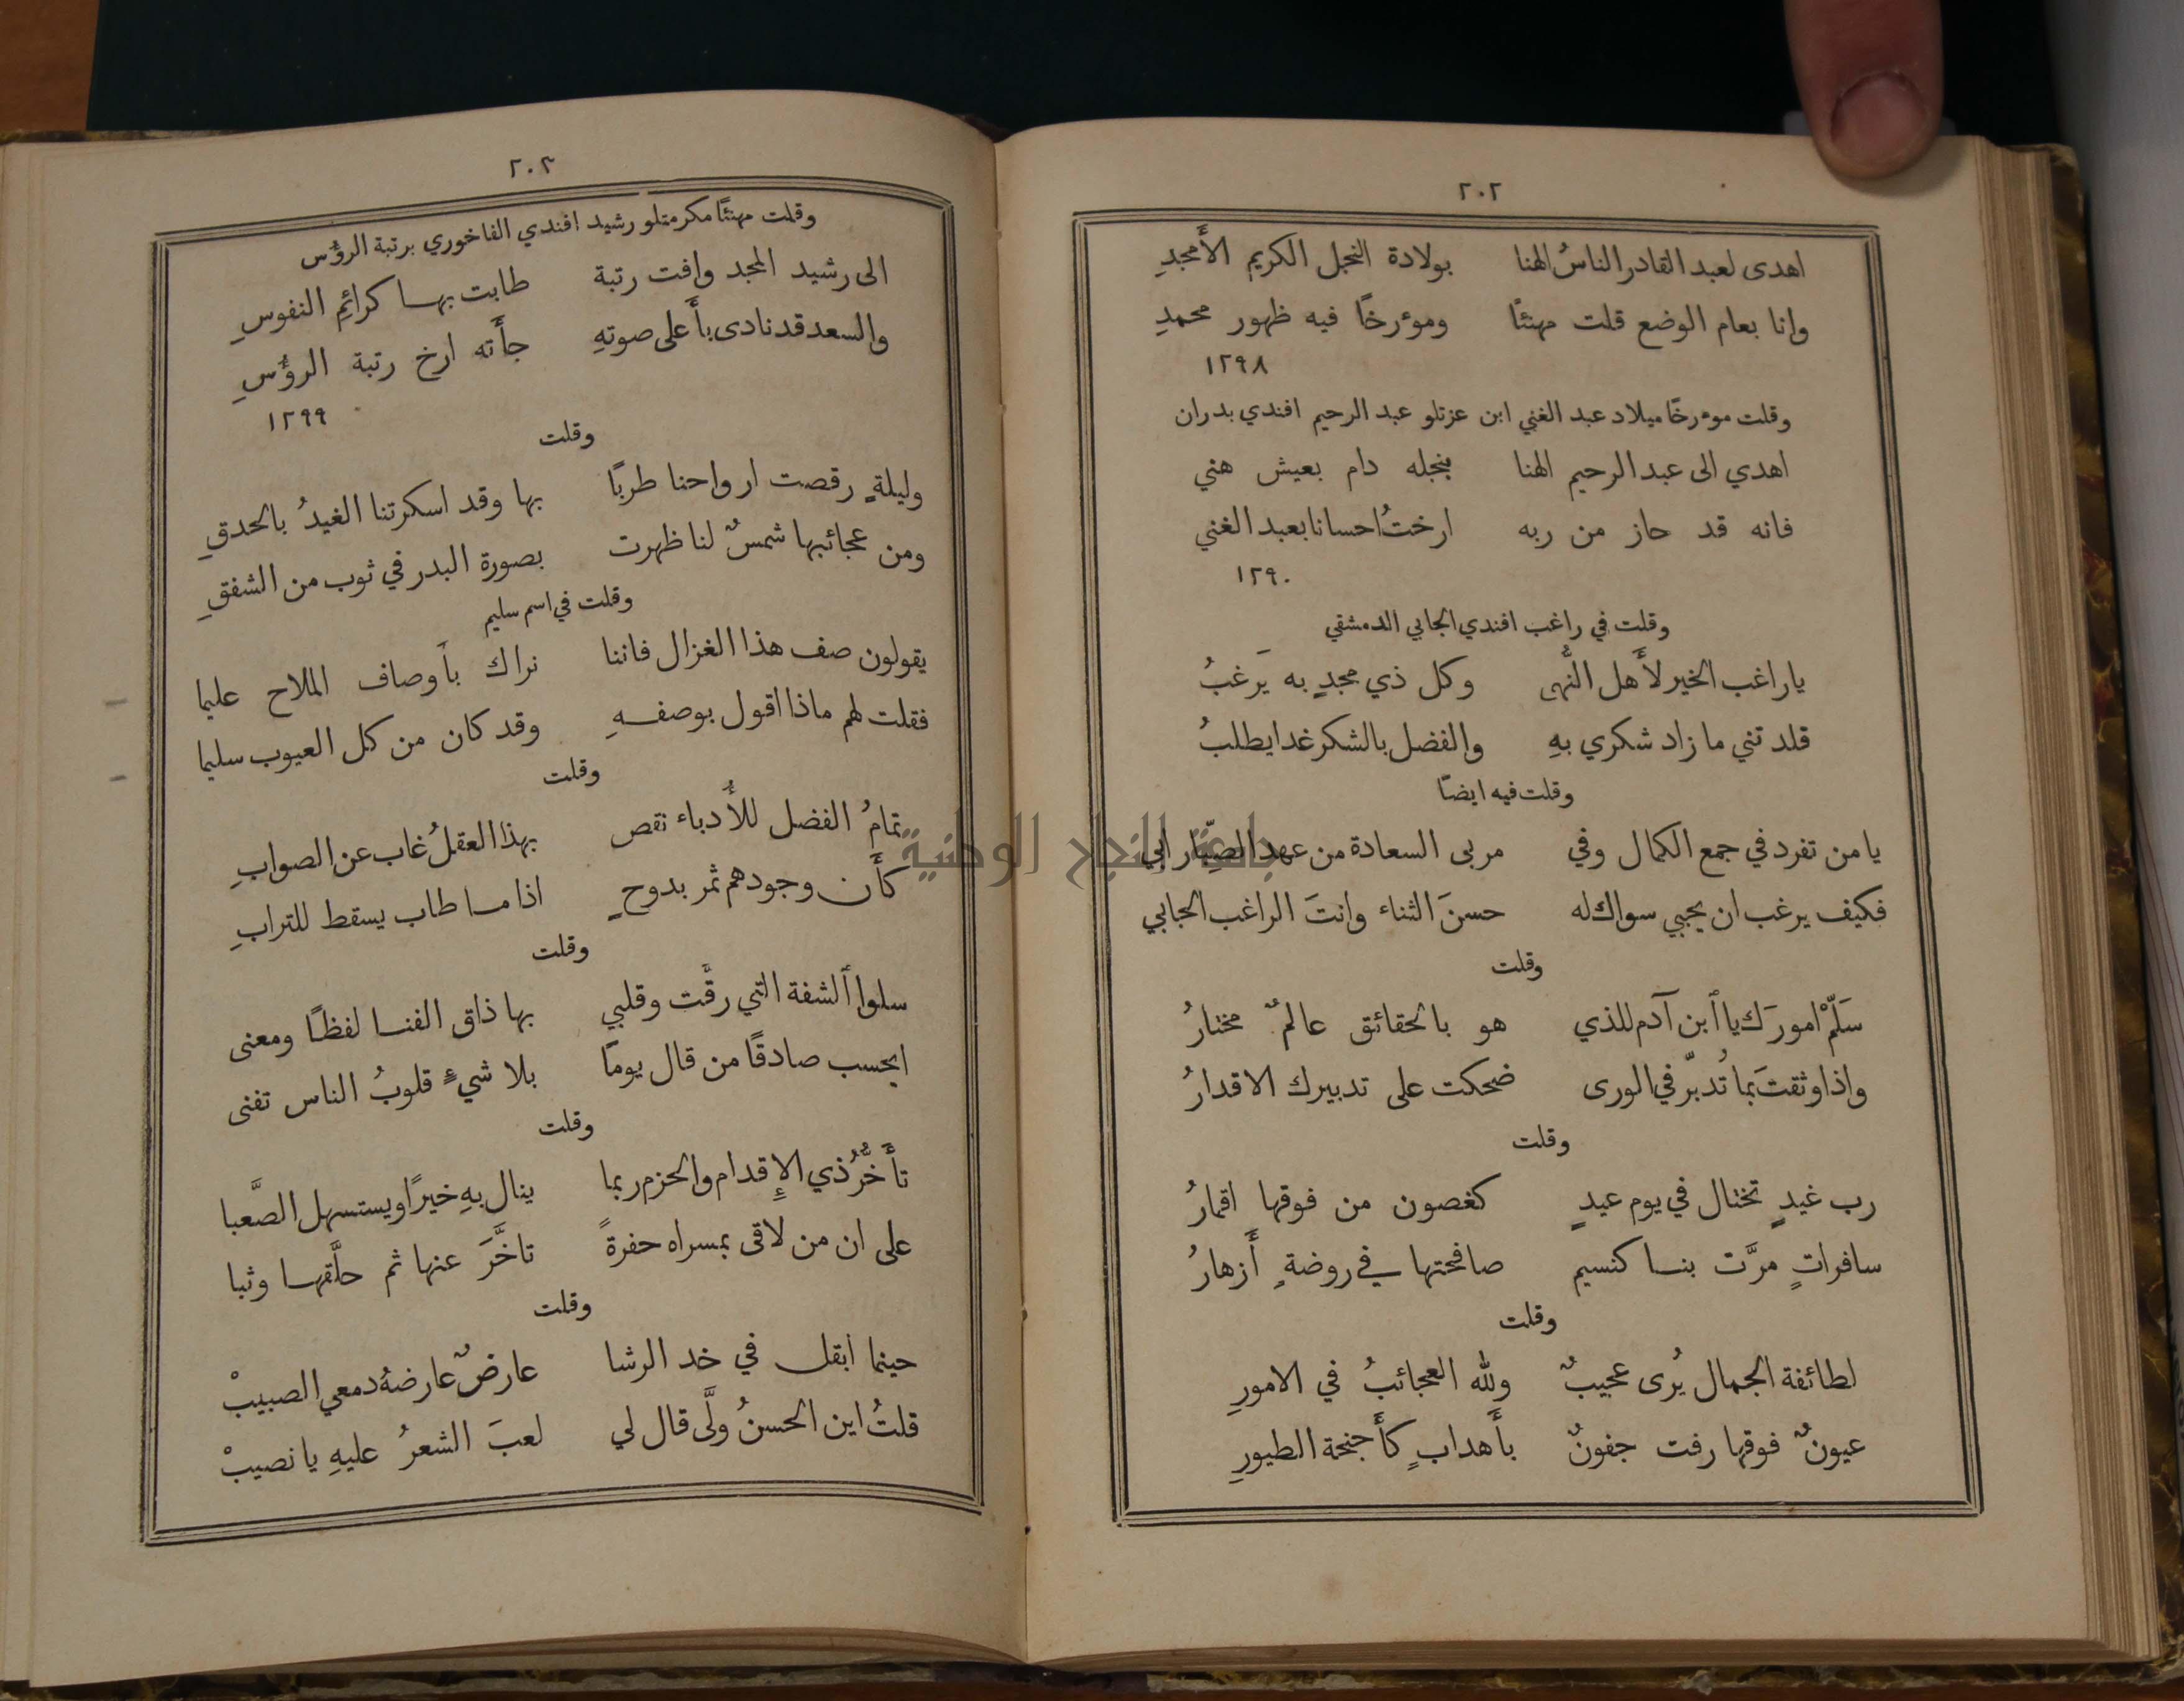 ٢٠٢
اهدى لعبد القادر الناسُ الهنا بولادة النجل الكريم الأَمجدِ
وانا بعام الوضع قلت مهنئًا ومؤرخًا فيه ظهور محمدِ
١٢٩٨
وقلت مؤرخًا ميلاد عبد الغني ابن عزتلو عبد الرحيم افندي بدران
اهدي الى عبد الرحيم الهنا بنجله دام بعيش هني
فانه قد حاز من ربه ارختُ احسانا بعبد الغني
١٢٩٠
وقلت في راغب افندي الجابي الدمشقي
يا راغب الخير لأَهل النُّهى وكل ذي مجدٍ به يَرغبُ
قلدتني ما زاد شكري بهِ والفضل بالشكر غدا يطلبُ
وقلت فيه ايضًا
يا من تفرد في جمع الكمال وفي مربى السعادة من عهد الصِّبا ربي
فكيف يرغب ان يجبي سواك له حسنَ الثناء وانتَ الراغب الجابي
وقلت
سَلّمْ امورَك يا ٱبن آدم للذي هو بالحقائق عالمٌ مختارُ
واذا وثقتَ بما تُدبّر في الورى ضحكت على تدبيرك الاقدارُ
وقلت
رب غيدٍ تختال في يوم عيدٍ كغصون من فوقها اقمارُ
سافراتٍ مرَّت بنا كنسيم صافحتها في روضةٍ أَزهارُ
وقلت
لطائفة الجمال يُرى عجيبٌ ولله العجائبُ في الامورِ
عيونٌ فوقها رفت جفونٌ بأَهدابٍ كأَجنحة الطيورِ
٢٠٣
وقلت مهنئًا مكرمتلو رشيد افندي الفاخوري برتبة الرؤُس
الى رشيد المجد وافت رتبة طابت بها كرائمِ النفوسِ
والسعد قد نادى بأَعلى صوتهِ جأَته ارخ رتبة الرؤُسِ
١٢٩٩
وقلت
وليلةٍ رقصت ارواحنا طربًا بها وقد اسكرتنا الغيدُ بالحدقِ
ومن عجائبها شمسٌ لنا ظهرت بصورة البدر في ثوب من الشفقِ
وقلت في اسم سليم
يقولون صف هذا الغزال فاننا نراك بأَوصاف الملاح عليما
فقلت لهم ماذا اقول بوصفهِ وقد كان من كل العيوب سليما
وقلت
تمامُ الفضل للأُدباء نقص بهذا العقلُ غاب عن الصوابِ
كأَن وجودهم ثمر بدوحٍ اذا ما طاب يسقط للترابِ
وقلت
سلوا ٱلشفة التي رقَّت وقلبي بها ذاق الفنا لفظًا ومعنى
ايحسب صادقًا من قال يومًا بلا شيءٍ قلوبُ الناس تفنى
وقلت
تأَخُّرُ ذي الإِقدام والحزم ربما ينال بهِ خيرًا ويستسهل الصَّعبا
على ان من لاقى بمسراه حفرةً تاخَّرَ عنها ثم حلَّقها وثبا
وقلت
حينما ابقل في خد الرشا عارضٌ عارضهُ دمعي الصبيبْ
قلتُ اين الحسنُ ولَّى قال لي لعبَ الشعرُ عليهِ يا نصيبْ
جامعة النجاح الوطنية